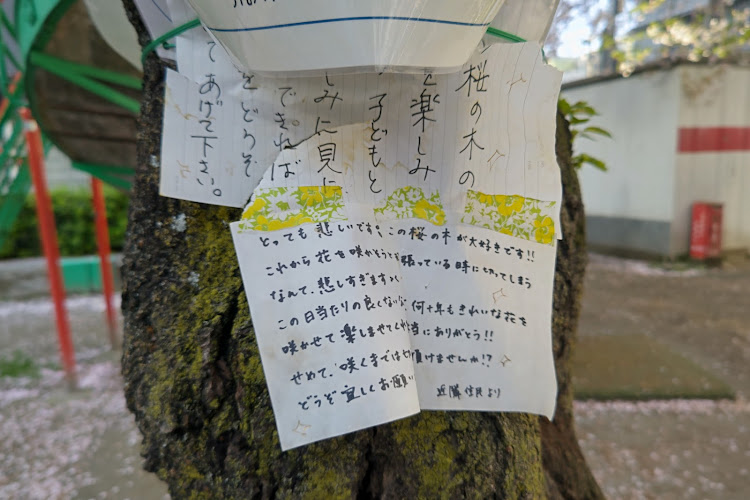 桜の木の
を楽しみ
子どもと
しみに見に
できれば
をどうぞ
てあげて下さい。
とっても悲しいです。この桜の木が大好きです!!
これから花を咲かそうと張っている時に切ってしまう
なんて、悲しすぎます
この日当たりの良くない 何十年もきれいな花を
咲かせて楽しませてくれ 当にありがとう!!
せめて、咲くまでは 頂けませんか!?
どうぞ宜しくお願い
近隣住民より